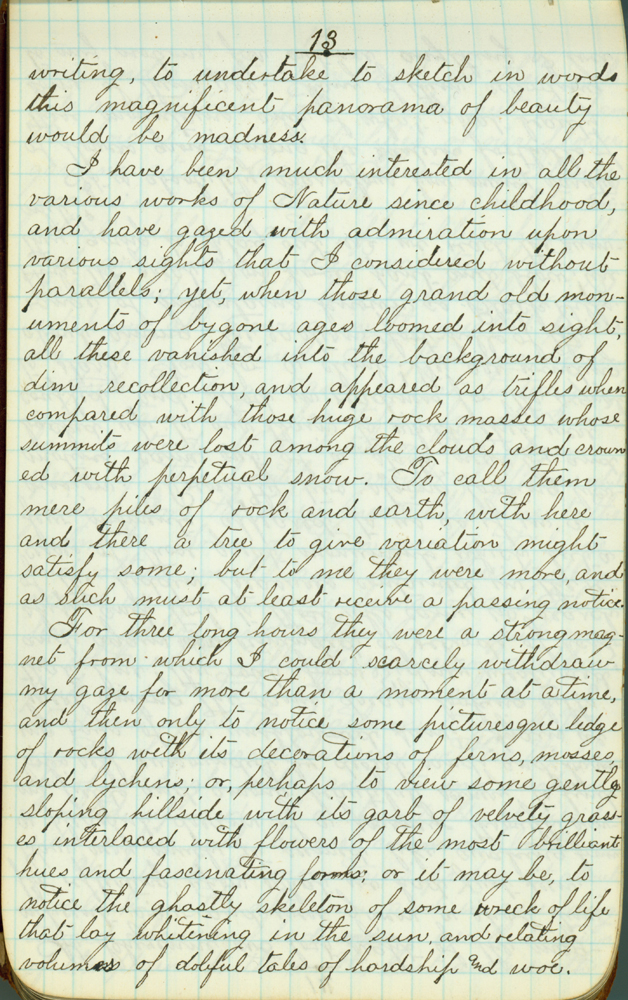 13
writing, to undertake to sketch in words
this magnificent panorama of beauty
would be madness.
I have been much interested in all the
various works of Nature since childhood,
and have gazed with admiration upon
various sights that I considered without
parallels; yet, when those grand old mon-
uments of bygone ages loomed into sight,
all these vanished into the background of
dim recollection, and appeared as trifles when
compared with those huge rock masses whose
summits were lost among the clouds and crown
ed with perpetual snow. To call them
mere piles of rock and earth, with here
and there a tree to give variation might
satisfy some; but to me they were more, and
as such must at least receive a passing notice.
For three long hours they were a strong mag-
net from which I could scarcely withdraw
my gaze for more than a moment at a time,
and then only to notice some picturesque ledge
of rocks with its decorations of ferns, mosses,
and lychens; or, perhaps to view some gently
sloping hillside with its garb of velvety grass-
es interlaced with flowers of the most brilliant
hues and fascinating forms; or it may be, to
notice the ghastly skeleton of some wreck of life
that lay whitening in the sun, and relating
volumes of doleful tales of hardship and woe.